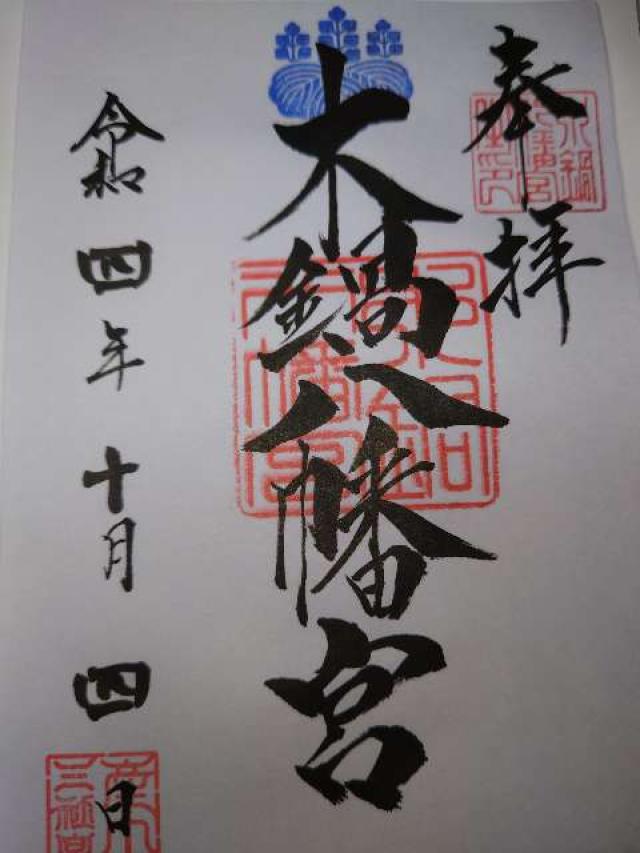 奉拝
木鍋八幡宮
令和四年十月四日